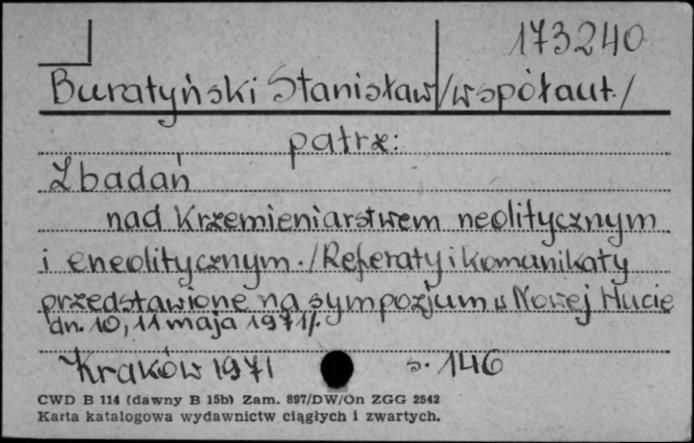 173240
Buratyński Stanisław /współaut./
patrz:
Z badań
nad krzemieniarstwem neolitycznym
i eneolitycznym. /Referaty i komunikaty
przedstawione na sympozjum w Nowej Hucie
dn. 10, 11 maja 1971/.
Kraków 1971 s. 146
CWD B 114 (dawny B 15b) Zam. 897/DW/On ZGG 2542
Karta katalogowa wydawnictw ciągłych i zwartych.